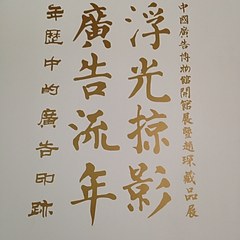 中國廣告博物館開館展暨趙琛藏品展
浮光掠影
廣告流年
年歷中的廣告印跡